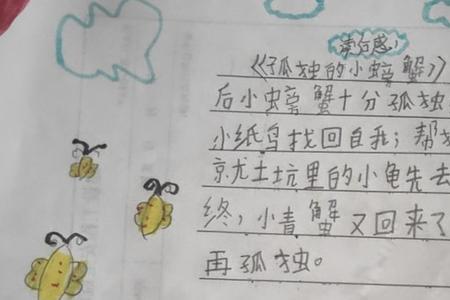 读后感
《孤独的小螃蟹》
后小螃蟹十分孤独
小纸鸟找回自我；帮
土坑里的小龟先去
终，小青蟹又回来了
再孤独。